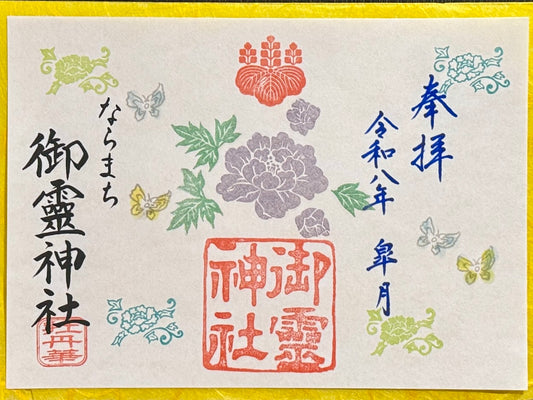 奉拝
令和八年 皐月
御霊神社
ならまち
御靈神社
牡丹華